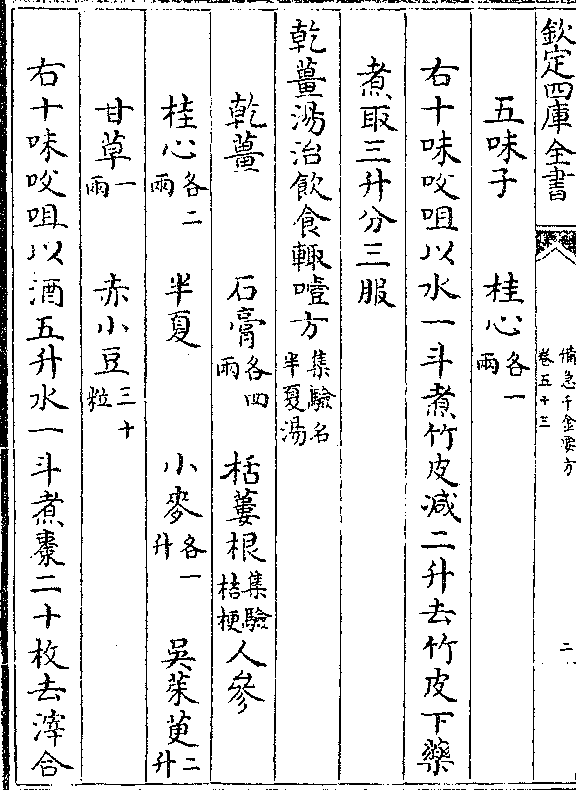 欽定四庫全書
備急千金要方
卷五十三
二
五味子 桂心各一兩
右十味㕮咀以水一斗煮竹皮減二升去竹皮下藥
煮取三升分三服
乾薑湯治飲食輒噎方集驗名半夏湯
乾薑 石膏各四兩 栝蔞根集驗桔梗 人參
桂心各二兩 半夏 小麥各一升 吳茱萸二升
甘草一兩 赤小豆三十粒
右十味㕮咀以酒五升水一斗煮棗二十枚去滓合